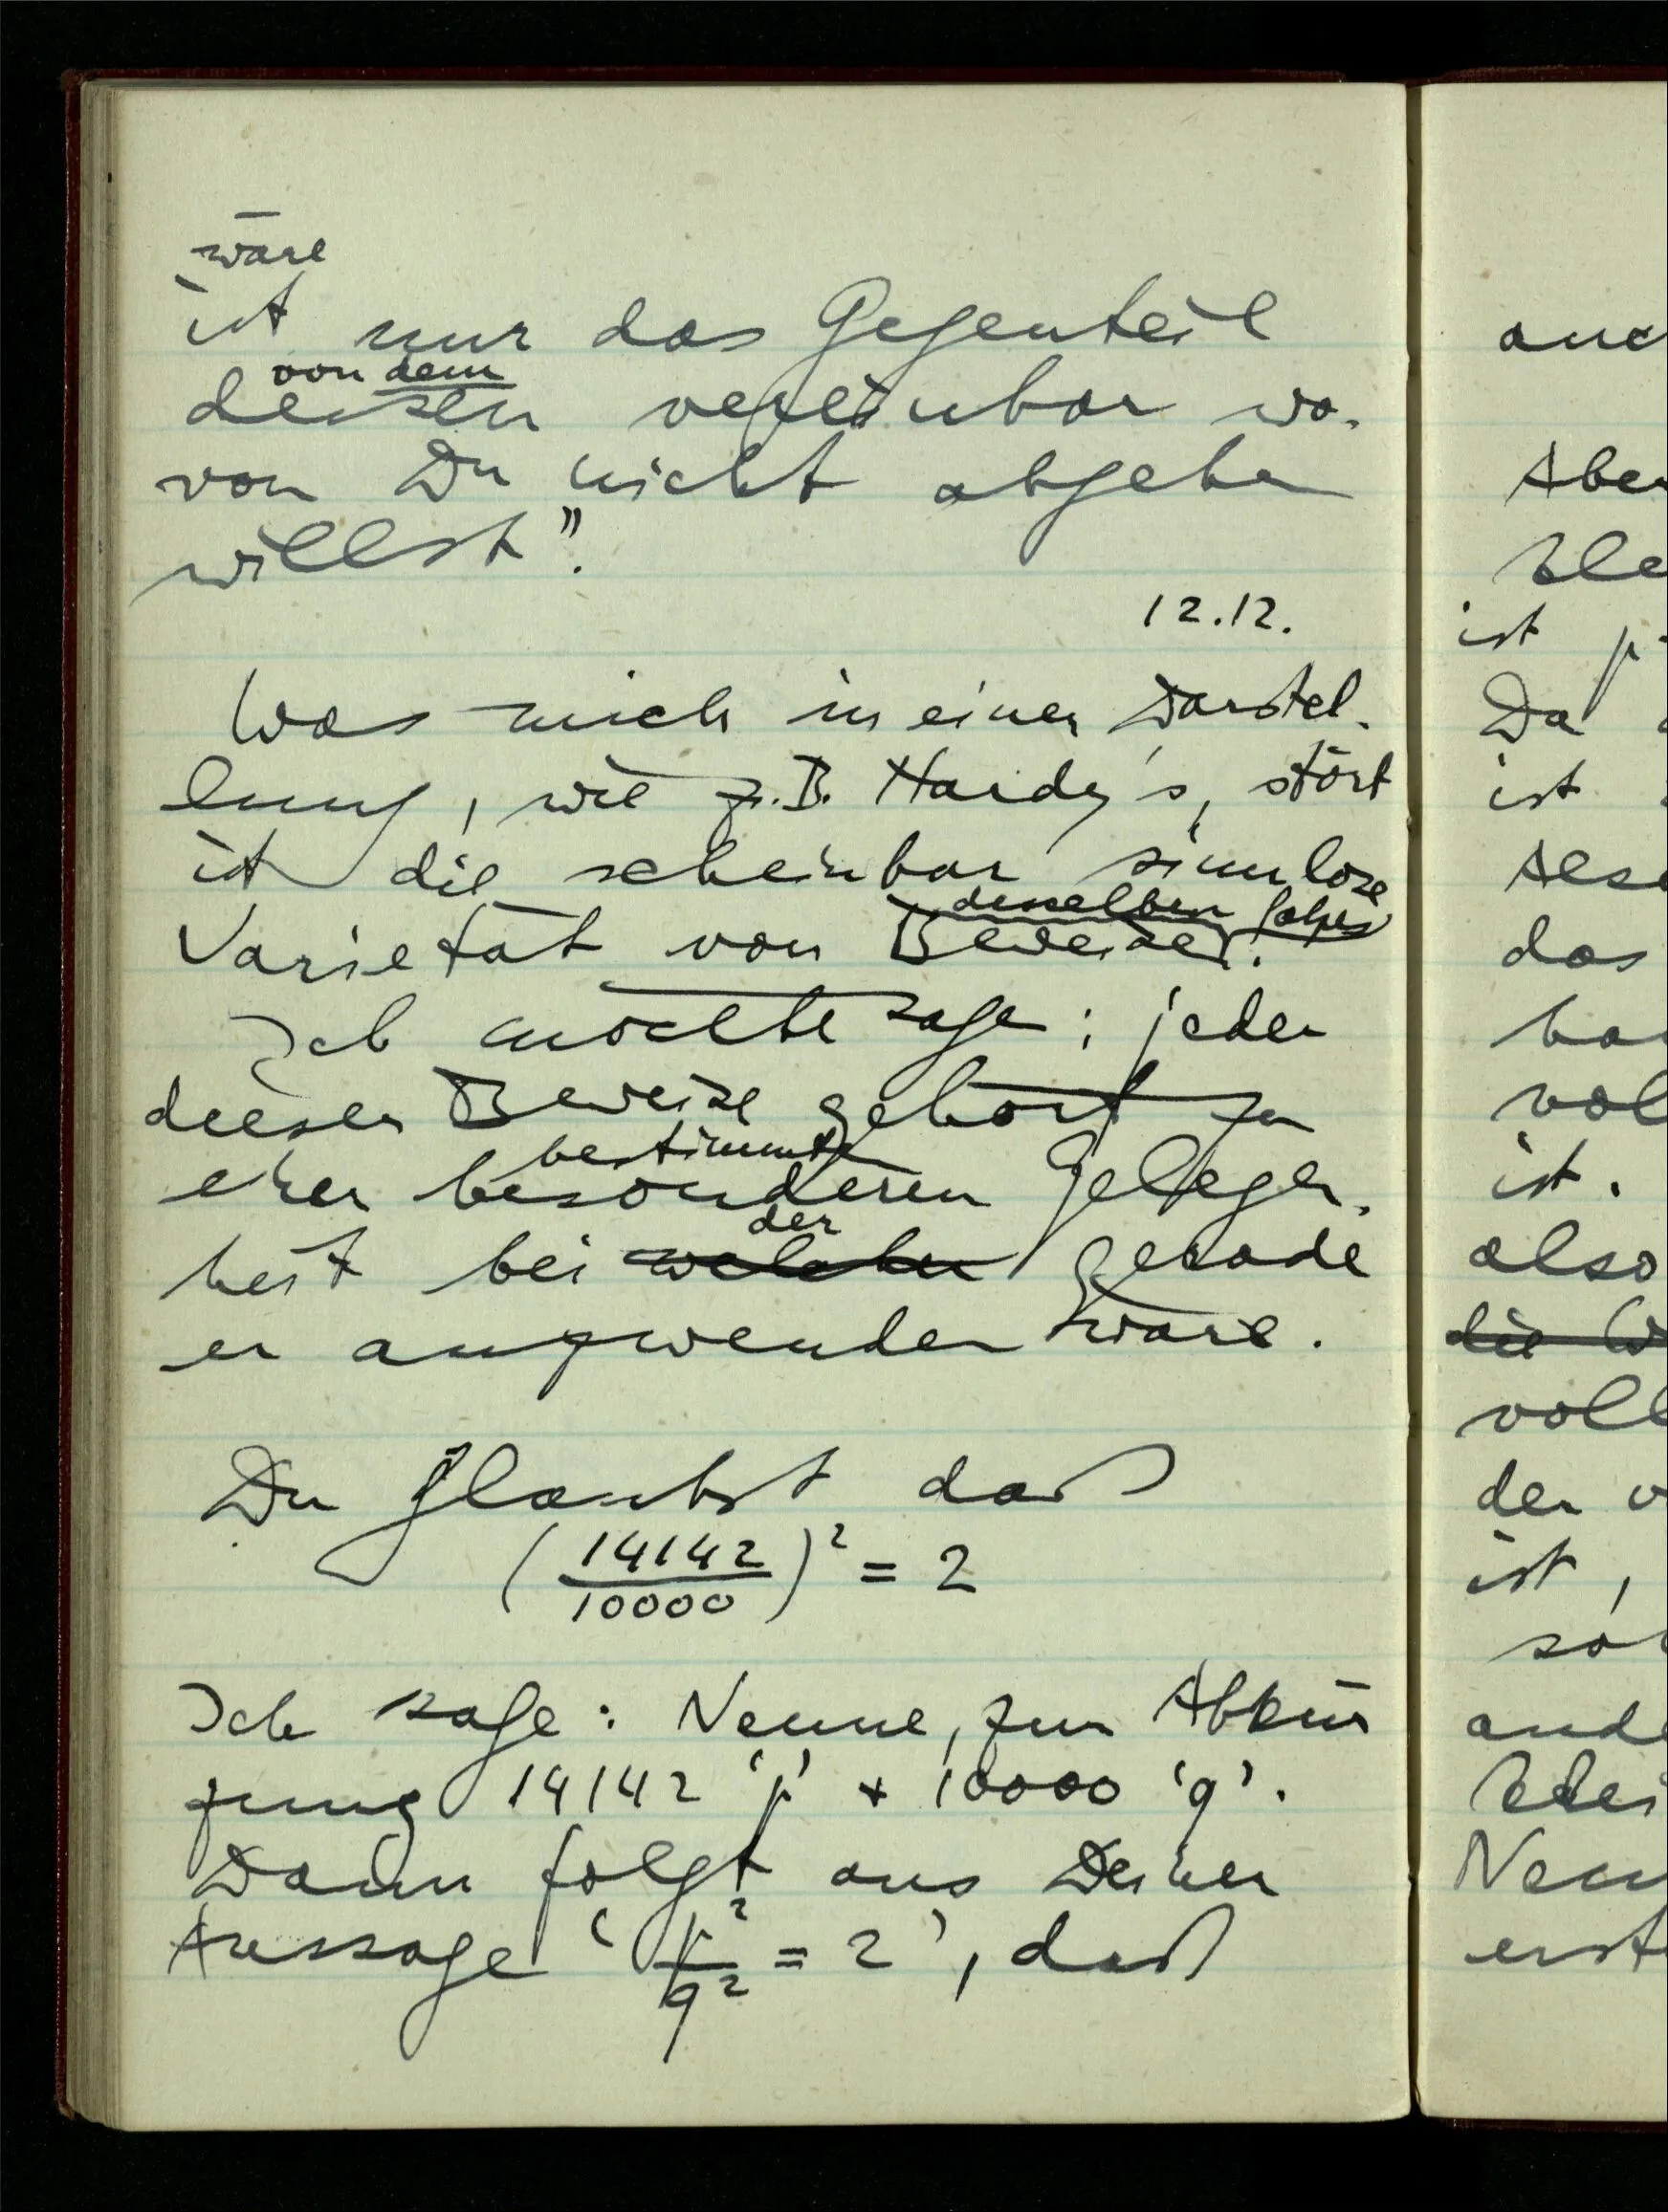 wäre
ist nur das Gegenteil
von dem
dessen vereinbar wo-
von Du nicht abgehen
willst".
12.12.
Was mich in einer Darstel-
lung, wie z.B. Hardy's, stört
ist die scheinbar sinnlose
desselben Satzes
Varietät von Beweisen.
Ich möchte sagen: jeder
dieser Beweise gehört zu
bestimmten
einer besonderen Gelegen-
der
heit bei welcher gerade
er anzuwenden wäre.
Du glaubst daß
(14142/10000)² = 2
Ich sage: Nenne, zur Abkür
zung 14142 'p' + 10000 'q'.
Dann folgt aus Deiner
Aussage 'p²/q² = 2', daß
auc
Aber
ist p
Da
ist
Also
das
ha
vol
ist.
also
die W
voll
der v
ist,
so
ande
Nen
erst